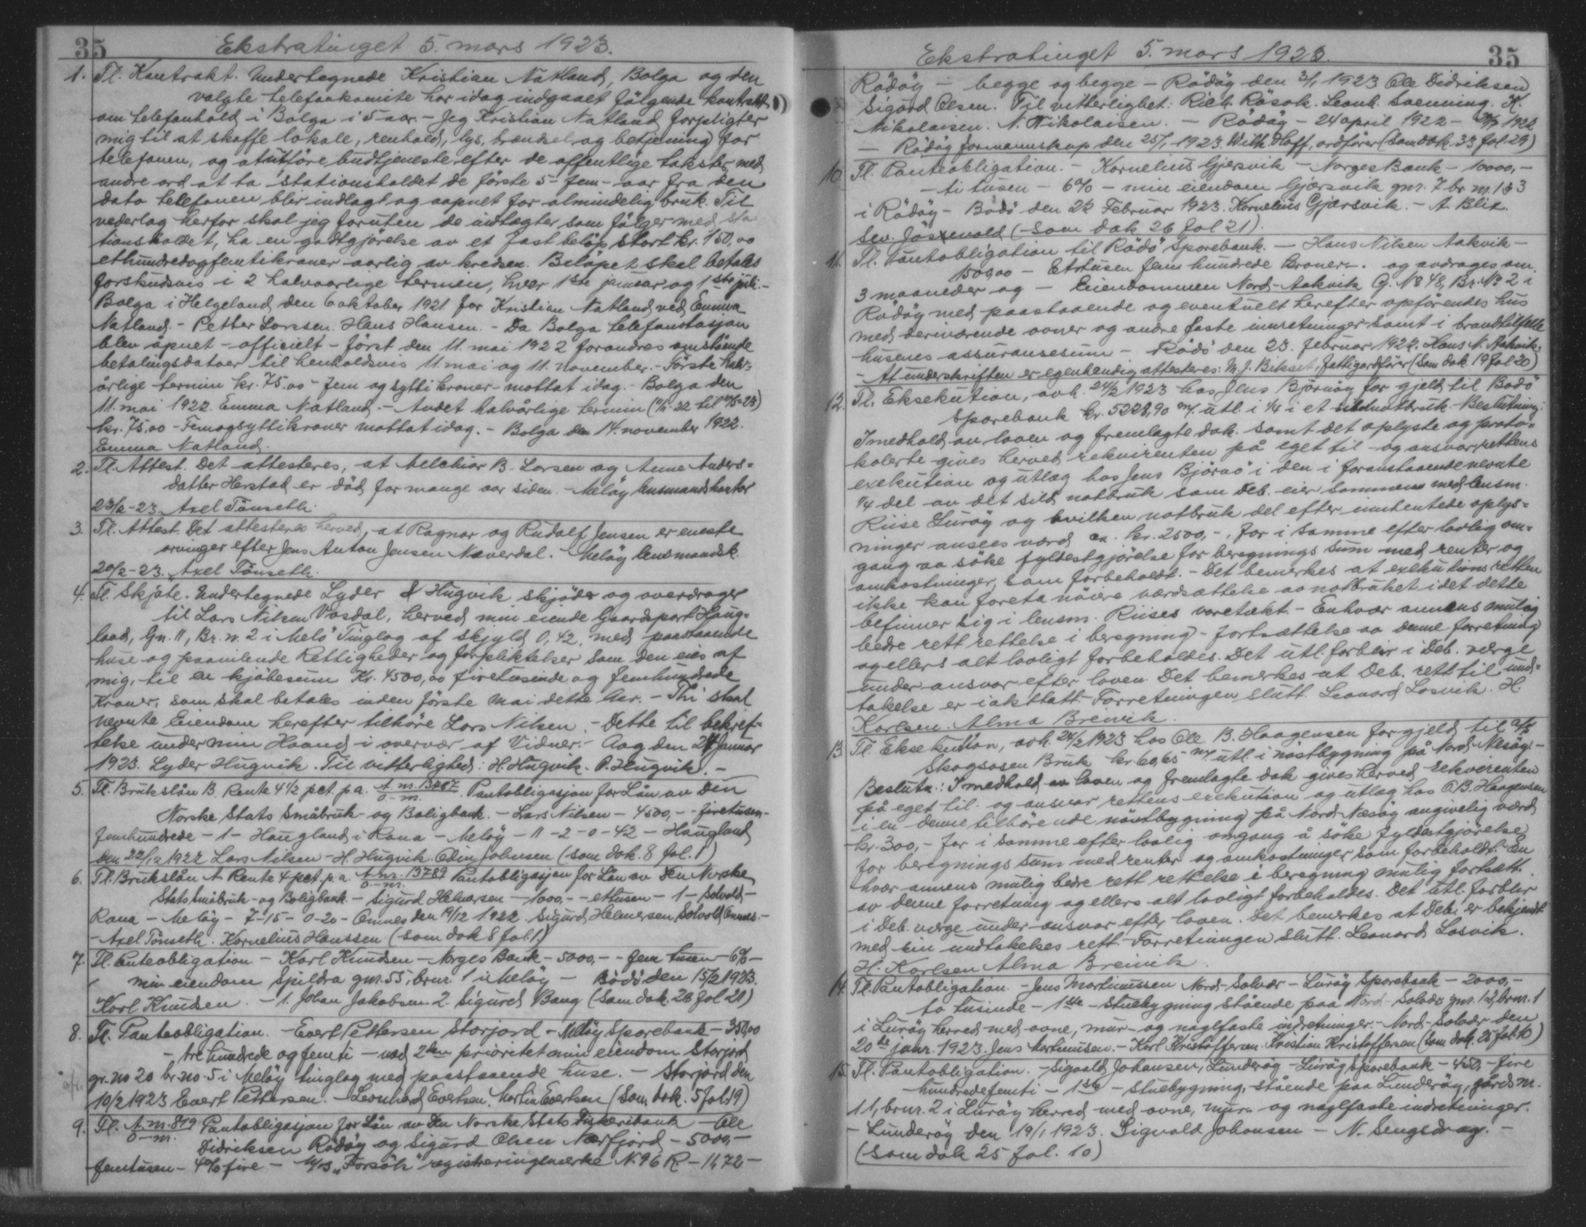 35 Ekstratinget 5. mars 1923.
1. Tl. Kontrakt. Undertegnede Kristian Natland, Bolga og den
valgte telefonkomite har idag indgaaet følgende kontrakt
om telefonhold i Bolga i 5 aar. - Jeg Kristian Natland forpligter
mig til at skaffe lokale, renhold, lys, brændsel og betjening for
telefonen, og at utføre budtjeneste efter de offentlige takster med
andre ord at ta stationsholdet de første 5 - fem - aar fra den
dato telefonen blir indlagt og aapnet for almindelig bruk. Til
vederlag herfor skal jeg foruten de indtægter som følger med sta
tionsholdet, ha en godtgjørelse av et fast beløp stort kr. 150,00
ethundredogfemtikroner aarlig av kredsen. Beløpet skal betales
forskudsvis i 2 halvaarlige terminer, hver 1ste januar og 1ste juli. -
Bolga i Helgeland den 6 oktober 1921 for Kristian Natland ved Emma
Natland - Petter Lorssen. Hans Hansen. - Da Bolga telefonstasjon
blev åpnet - officielt - først den 11 mai 1922 forandres omstående
betalingsdatoer til henholdsvis 11 mai og 11. november. - Første halv=
årlige termin kr. 75.00 - fem og sytti kroner - mottat idag. Bolga den
11. mai 1922 Emma Natland. - Andet halvårlige termin (11/11-22 til 11/5-23)
kr. 75,00 - Femogsyttikroner mottat idag. - Bolga den 14. november 1922.
Emma Natland.
2. Tl. Attest. Det attesteres, at Melchior B. Larsen og Anne Anders=
datter Herstad er död for mange aar siden. - Meløy lensmandskontor
23/2-23. Axel Tönseth.
3. Tl. Attest. Det attesteres herved, at Ragnar og Rudolf Jensen er eneste
arvinger efter Jens Anton Jensen Næverdal. - Meløy lensmandsk.
20/2-23. Axel Tönseth.
4. Tl. Skjöte. Undertegnede Lyder Hugvik skjøder og overdrager
til Lars Nilsen Vasdal, herved min eiende Gaardspart Haug=
land, Gn. 11, Br. n. 2 i Melö Tinglag af skyld 0,42, med paastaaende
huse og paahvilende Rettigheder og forpliktelser som den eies af
mig, til en kjøbesum Kr. 4500,00 firetusinde og femhundrede
Kroner, som skal betales inden første Mai dette Aar. - Thi skal
nevnte Eiendom herefter tilhöre Lars Nilsen. - Dette til bekræf-
telse under min Haand i overvær af Vidner. - Aag den 24 Januar
1923. Lyder Hugvik. Til vitterlighed: H. Hugvik. P. Hugvik. -
5. Tl. Brukslån B Rente 4 1/2 pct. p a. Pantobligasjon for Lån av Den
Norske Stats Småbruk - og Boligbank. - Lars Nilsen - 4500, - firetusen-
femhundrede - 1 - Haugland i Rana - Meløy - 11 - 2 - 0 - 42 - Haugland
den 22/12 1922 Lars Nilsen - H. Hugvik. Johnsen (som dok. 8 fol. 1)
6. Tl. Brukslån A Rente 4 pct. p a Pantobligasjon for Lån av Den Norske
Stats Småbruk - og Boligbank - Sigurd Helmersen - 1000, - ettusen - 1 - Solvold -
Rana - Meløy - 7 - 15 - 0-20 - Ennes den 19/12 1922. Sigurd Helmersen Solvold Ennes. -
- Axel Tönseth. Kornelius Hanssen (som dok 8 fol. 1)
7. Tl. Panteobligation - Karl Knudsen - Norges Bank - 5000, - - fem tusen - 6% -
min eiendom Spildra gnr. 55, brnr. 1 i Meløy - Bodö den 15/2 1923.
Karl Knudsen. - 1. Johan Jakobsen. 2. Sigurd Bang (som dok. 26 fol 21)
8. Tl. Panteobligation. - Evert Pettersen Storjord - Meløy Sparebank - 350,00
- tre hundrede og femti - med 2den prioritet min eiendom Storjord
gr. no 20 br. no 5 i Meløy tinglag med paastaaende huse. - Storjord den
10/2 1923 Evert Pettersen. Leonhard Evertsen. Martin Evertsen (som dok. 5 fol 19)
9. Tl. Pantobligasjon for Lån av Den Norske Stats Fiskeribank - Ole
Didriksen Rødøy og Sigurd Olsen Nærfjord - 5000, -
femtusen - 4% fire - M/S „Forsök" registreringsmerke N 96 R - 1472 -
Ekstratinget 5. mars 1923. 35
Rødøy - begge og begge - Rødøy den 3/1 1923 Ole Didriksen
Sigurd Olsen. Til vitterlighet: Rich. Røsok. Leonh. Soenning. K.
Nikolaisen. N. Nikolaisen. - Rødøy - 24 april 1922 - 1922
- Rødøy formannskap den 25/1 1923. Wilh. Hoff, ordfører (som dok. 33 fol 29)
10. Tl. Panteobligation. - Kornelius Gjersvik - Norges Bank - 10000, -
- ti tusen - 6% - min eiendom Gjærsvik gnr. 7 br. nr. 1 & 3
i Rødøy - Bodö den 22 Februar 1923. Kornelius Gjærsvik. - A. Blix.
(som dok 26 fol 21).
11. Tl. Pantobligation til Rødö Sparebank. - Hans Nilsen Aakvik -
1500,00 - Ettusen fem hundrede kroner - og avdrages om
3 maaneder og - Eiendommen Nord-Aakvik G. No 48, Br. No 2 i
Rødøy med paastaaende og eventuelt herefter opförendes hus
med derinværende ovner og andre faste indretninger samt i brandtilfælle
husenes assuransesum - Rødö den 23. februar 1923. Hans N. Aakvik.
- At underskriften er egenhændig attesteres: N. J. Bikset, Jektigordfører (som dok 19 fol 20)
12. Tl. Eksekution, avh. 24/2 1923 hos Jens Björnøy for gjeld til Bodö
Sparebank kr. 5228,90 m/ utl. i 1/4 i et sildnotbruk. - Beslutning:
I medhold av loven og fremlagte dok. samt det oplyste og proto=
kolerte gives herved rekvirenten på eget til - og ansvar rettens
exekution og utlæg hos Jens Bjørnö i den i foranstaaende nevnte
1/4 del av det sild notbruk som Deb. eier sammen med lensm.
Riise Lurøy og hvilken notbruk del efter innhentede oplys=
ninger ansees værd ca. kr. 2500, -, for i samme efter lovlig om=
gang aa söke fyldestgjørelse for beregnings sum med renter og
omkostninger, som forbeholdt. - Det bemerkes at exekutionsretten
ikke kan foreta nöiere værdsættelse av notbruket idet dette
befinner sig i lensm. Riises varetækt - Enhver annens mulig
bedre rett rettelse i beregning - fortsættelse av denne forretning
og ellers alt lovligt forbeholdes. Det utl. forblir i Deb. værge
under ansvar efter loven. Det bemerkes at Deb. rett til und=
takelse er iakttatt. Forretningen slutt. Leonard Losvik. H.
Karlsen. Alma Breivik.
13 Tl. Eksekution, avh. 24/2 1923 hos Ole B. Haagensen for gjeld til A/S
Skogsåsen Bruk kr. 60,65 m/ utl. i nöstbygning på Nord-Nesøy -
Beslutn: I medhold av loven og fremlagte dok gives herved rekvirenten
på eget til - og ansvar rettens exekution og utlæg hos O. B. Haagensen
i en denne tilhörende nöstbygning på Nord-Nesøy angivelig værd
kr. 300, - for i samme efter lovlig omgang å söke fyldestgjörelse
for beregnings sum med renter og omkostninger som forbeholdt. En
hver annens mulig bedre rett rettelse i beregning mulig fortsatt.
av denne forretning og ellers alt lovligt forbeholdes. Det utl. forblir
i Deb. værge under ansvar efter loven. Det bemerkes at Deb. er bekjendt
med sin undtakelses rett. Forretningen slutt. Leonard Losvik.
H. Karlsen Alma Breivik.
14. Tl. Pantobligation. - Jens Martinussen Nord-Solvær - Lurøy Sparebank - 2000, -
to tusinde - 1ste - stuebygning stående paa Nord-Solvær gnr. 12, brnr. 1
i Lurøy herred med ovne, mur - og naglfaste indretninger. - Nord-Solvær den
20de janr. 1923. Jens Martinusen. - Karl Kristoffersen. Kristian Kristoffersen (som dok. 25 fol. 10)
15. Tl. Pantobligation. - Sigvald Johansen, Lunderøy - Lurøy Sparebank - 450, - fire
hundredefemti - 1ste - stuebygning, stående paa Lunderøy, gårds nr.
11, brnr. 2 i Lurøy herred med ovne, mur - og naglfaste indretninger.
- Lunderøy den 19/1 1923. Sigvald Johansen - N. Sengsdrag. -
(som dok 25 fol. 10)